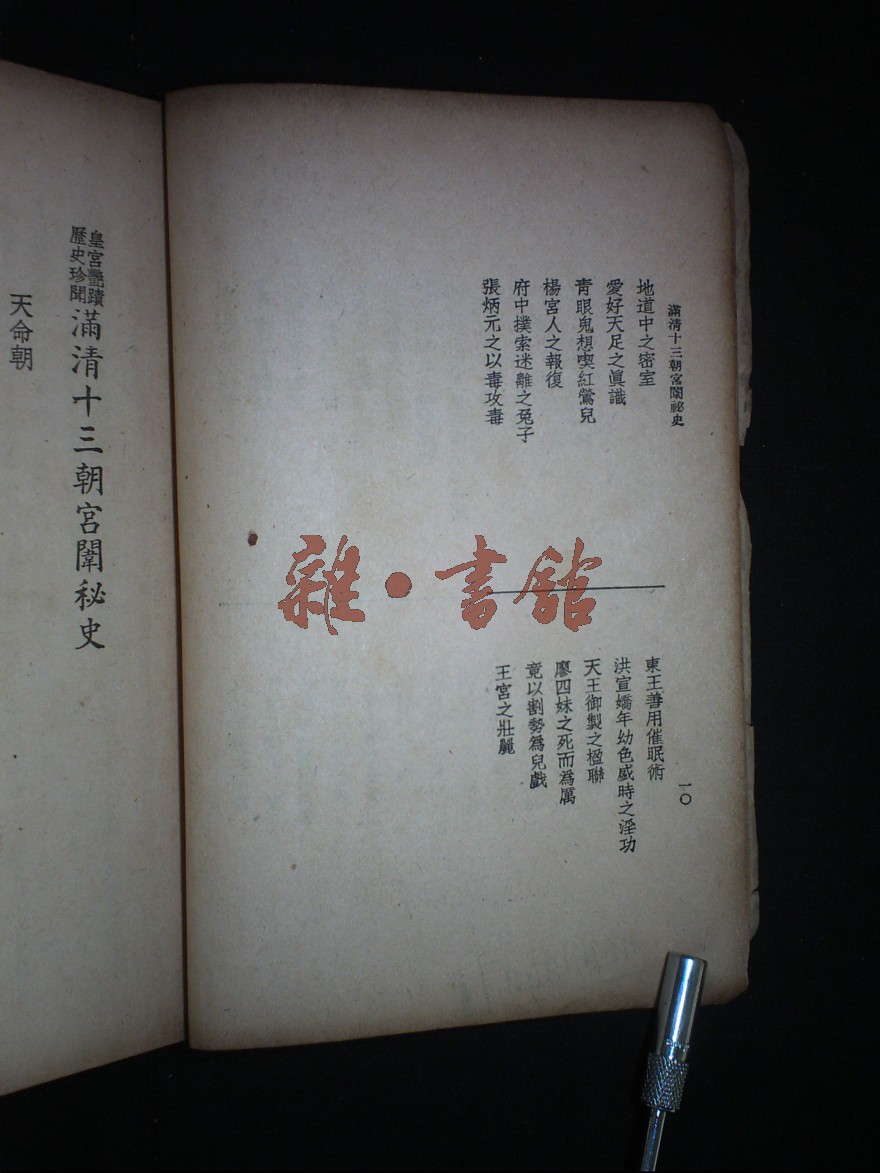 滿清十三朝宮闈祕史
地道中之密室
愛好天足之眞識
靑眼鬼想喫紅鶯兒
楊宮人之報復
府中撲索迷離之兔子
張炳元之以毒攻毒
一〇
東王善用催眠術
洪宣嬌年幼色盛時之淫功
天王御製之楹聯
廖四妹之死而爲厲
竟以割勢爲兒戲
王宮之壯麗
雜·書館
皇宮艷蹟
歷史珍聞
滿清十三朝宮闈秘史
天命朝